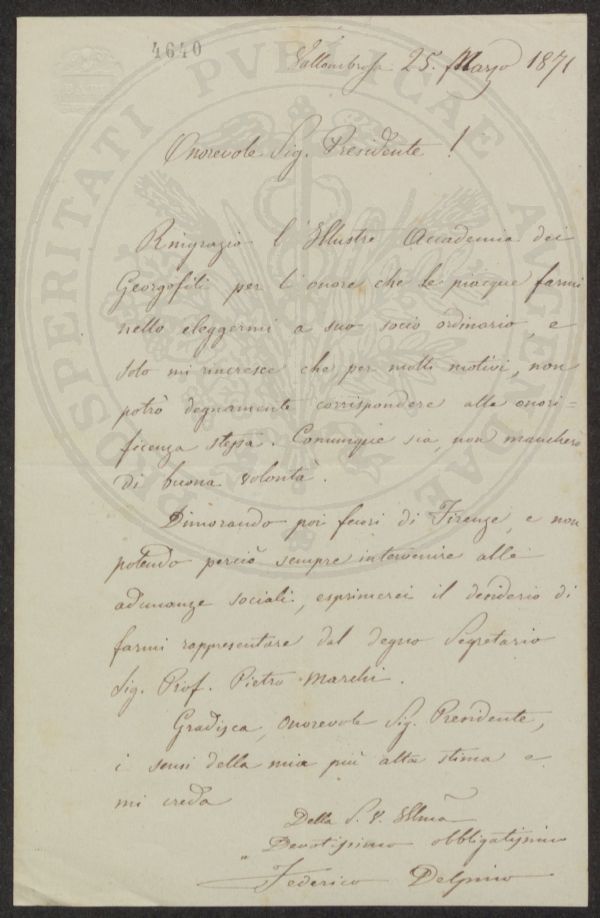 4640
Vallombrosa 25. Marzo 1871
Onorevole Sig. Presidente!
Ringrazio l'Illustre Accademia dei
Georgofili per l'onore che le piacque farmi
nello eleggermi a suo socio ordinario, e
solo mi rincresce che per molti motivi, non
potrò degnamente corrispondere alla onori-
ficenza stessa. Comunque sia, non mancherò
di buona volontà.
Dimorando poi fuori di Firenze, e non
potendo perciò sempre intervenire alle
adunanze sociali, esprimerei il desiderio di
farmi rappresentare dal degno Segretario
Sig. Prof. Pietro Marchi.
Gradisca, Onorevole Sig. Presidente,
i sensi della mia più alta stima e
mi creda
Della S. V. Illma
Devotissimo obbligatissimo
Federico Delpino
PROSPERITATI PVBLICAE AVGENDAE